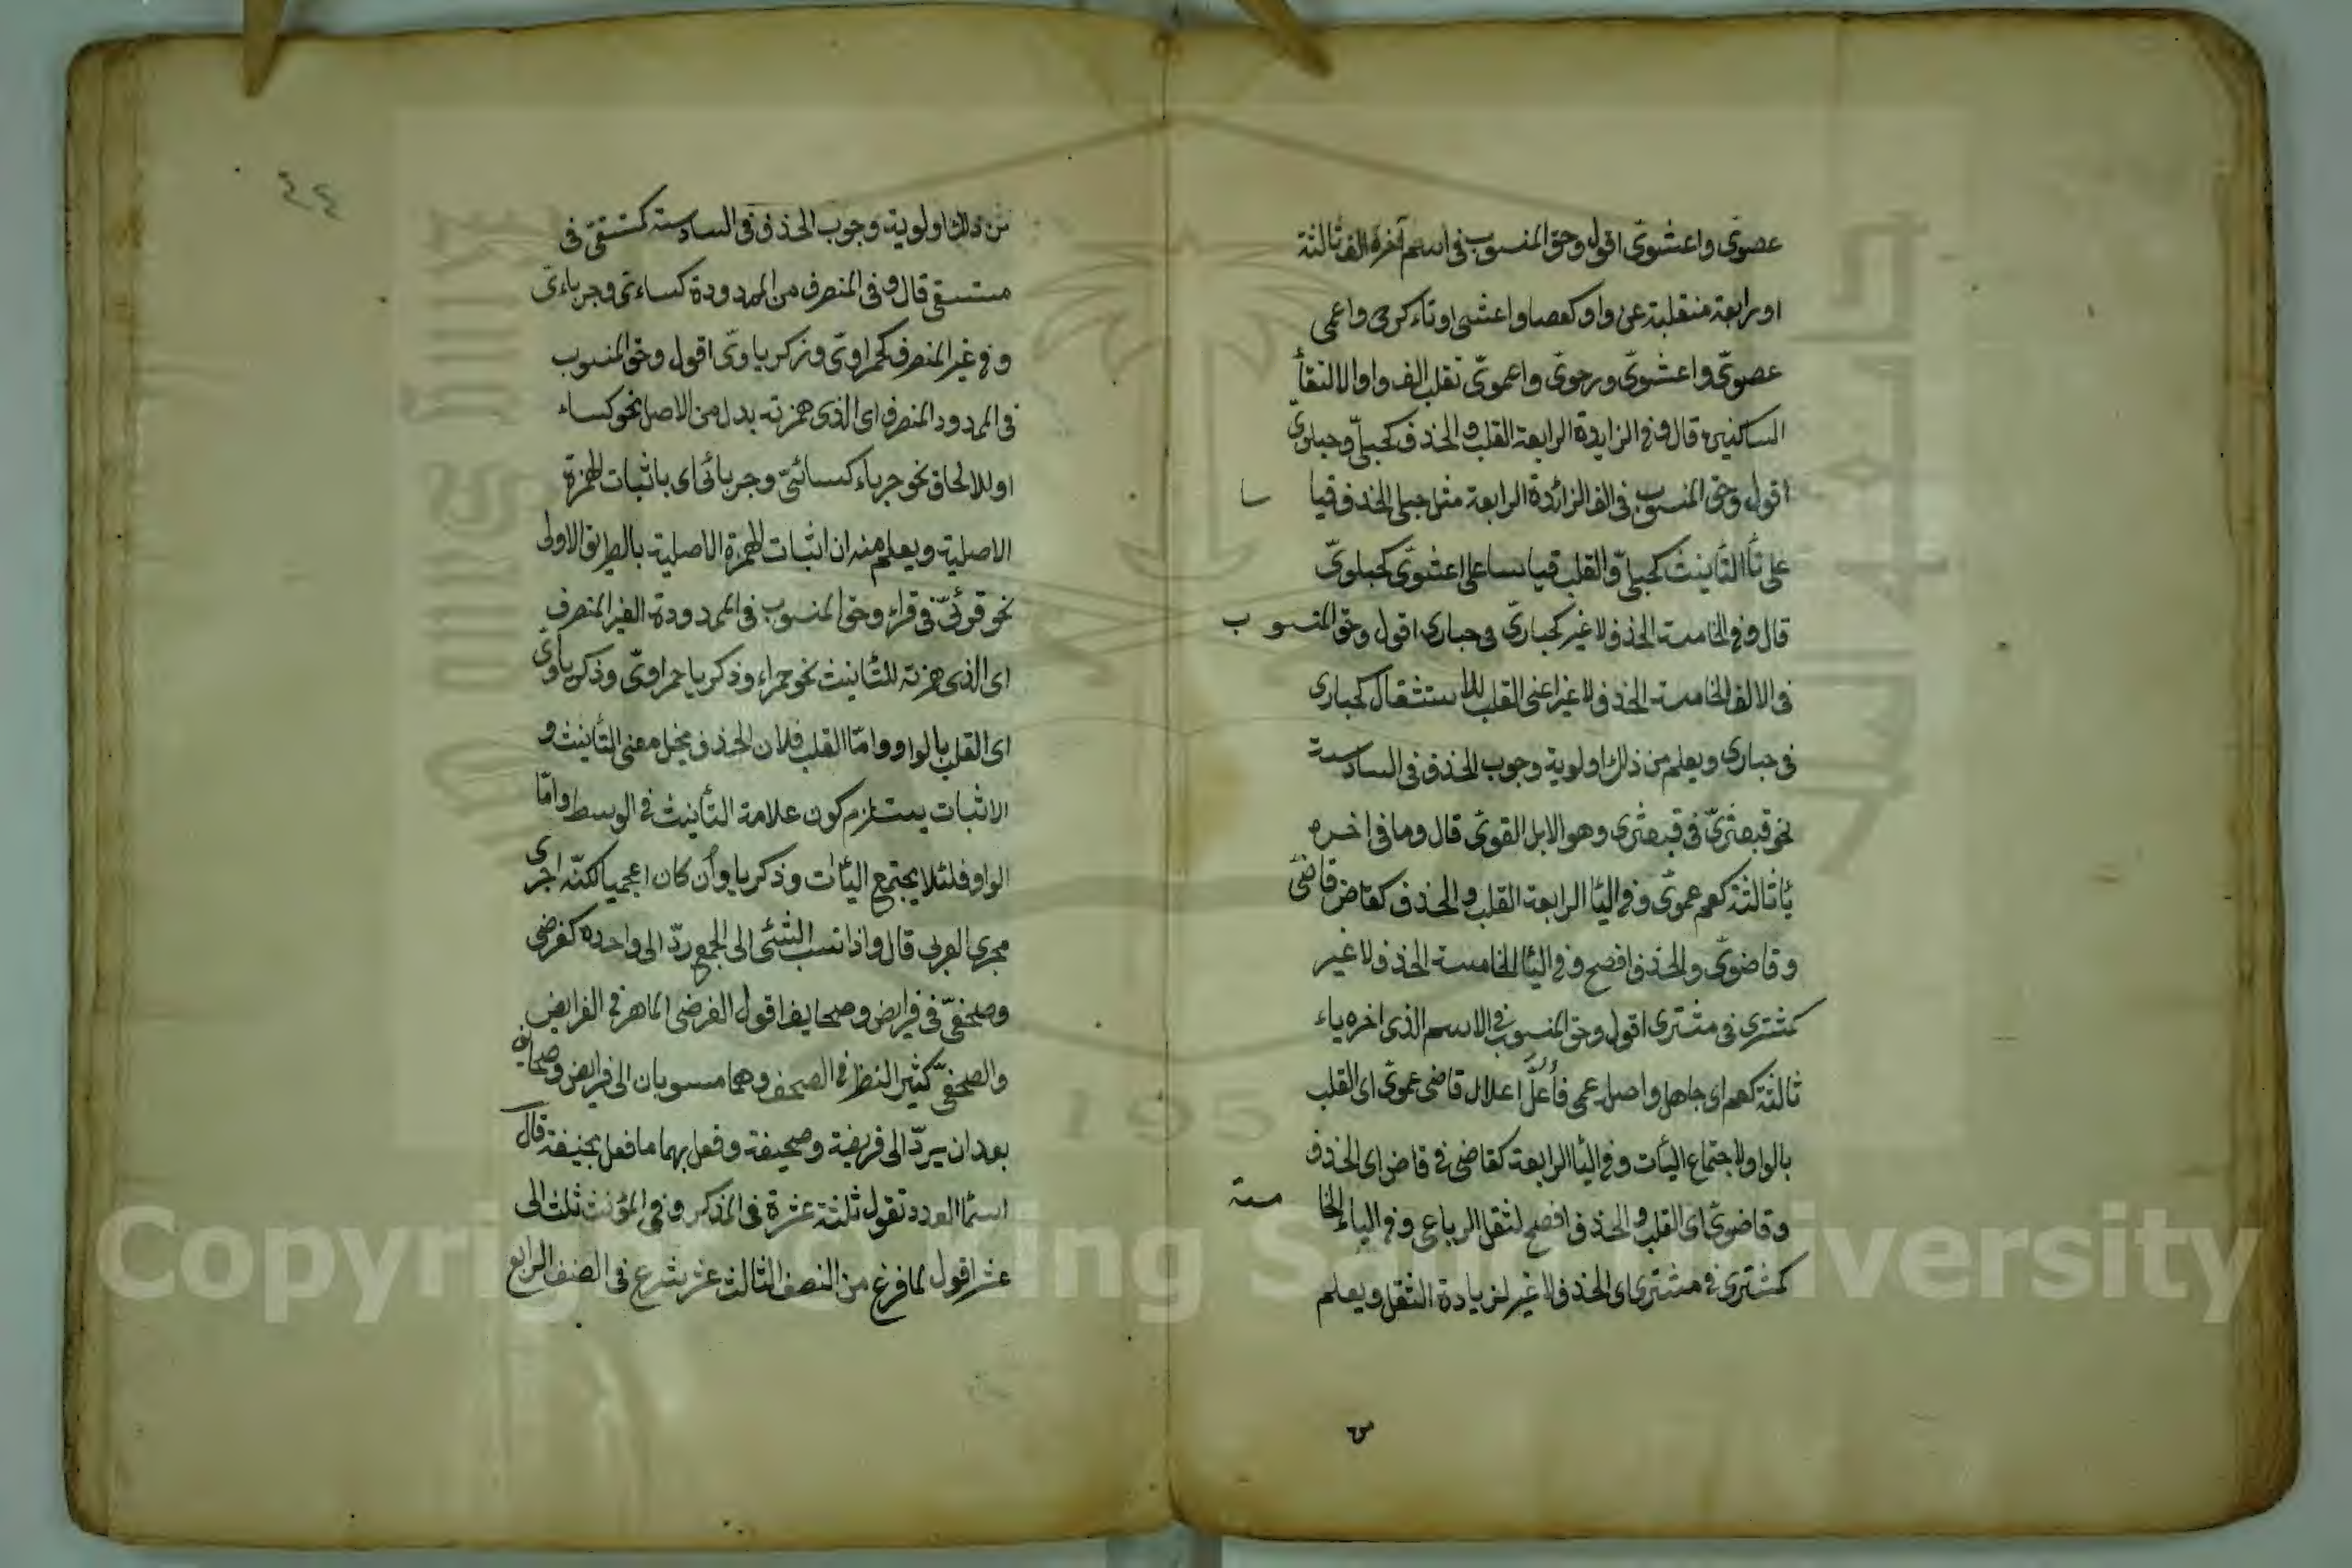 عصوى واعشوى اقول وحق المنسوب فى اسم آخره الف ثالثة
او رابعة منقلبة عن واو كعصا واعشى او ياء كرحى واعمى
عصوىّ واعشوىّ ورحوىّ واعموىّ تقلب الف واوا لالتقأ
الساكنين قال وفى الزايدة الرابعة القلب والحذف كحبلىّ وحبلوىّ
اقول وحق المنسوب فى الف الزائدة الرابعة مثل حبلى الحذف قيا سا
على تأ التأنيث كحبلىّ والقلب قياسا على اعشوىّ كحبلوىّ
قال وفى الخامسة الحذف لا غير كحبارىّ فى حبارى اقول وحق المنسو ب
فى الالف الخامسة الحذف لا غير اعنى القلب للاستثقال كحبارى
فى حبارى ويعلم من ذلك اولوية وجوب الحذف فى السادسة
نحو قبعثرىّ فى قبعثرى وهو الابل القوىّ قال وما فى اخره
يأ ثالثة كعم عموىّ وفى اليأ الرابعة القلب والحذف كقاض قاضىّ
وقاضوىّ والحذف افصح وفى اليأ الخامسة الحذف لا غير
كمشترى فى مشترى اقول وحق المنسوب فى الاسم الذى اخره ياء
ثالثة كعم اى جاهل واصل عمى فأعلّ اعلال قاضى عموىّ اى القلب
بالواو لاجتماع اليأت وفى اليأ الرابعة كقاضى فى قاض اى الحذف
وقاضوىّ اى القلب والحذف افصح لثقل الرباعى وفى الياء الخا مسة
كمشترى فى مشترى اى الحذف لا غير لزيادة الثقل ويعلم
٤٤
من ذلك اولوية وجوب الحذف فى السادسة كمستسقىّ فى
مستسقى قال وفى المنصرف من الممدودة كساءىّ وجرباءىّ
وفى غير المنصرف كحمراوىّ وزكرياوىّ اقول وحق المنسوب
فى الممدود المنصرف اى الذى همزته بدل من الاصل نحو كساء
او للالحاق نحو جرباء كسائىّ وجربائى اى باثبات الهمزة
الاصلية ويعلم منه ان اثبات الهمزة الاصلية بالطريق الاولى
نحو قرئىّ فى قراء وحق المنسوب فى الممدودة الغير المنصرف
اى الذى همزته للتأنيث نحو حمراء وذكريا حمراوىّ وذكرياوىّ
اى القلب بالواو وامّا القلب فلان الحذف يخل معنى التأنيث و
الاثبات يستلزم كون علامة التأنيث فى الوسط وامّا
الواو فلئلا يجتمع اليأت وذكريا وأن كان اعجميا لكنّه اجرى
مجرى العربى قال واذا نسب الشئى الى الجمع ردّ الى واحده كفرضى
وصحفىّ فى فرايض وصحايف اقول الفرضى الماهر فى الفرايض
والصحفىّ كثير النظر فى الصحف وهما منسوبان الى فرايض وصحائف
بعد ان يردّ الى فريضة وصحيفة وفعل بهما ما فعل بحنيفة قال
اسمأ العدد تقول ثلثة عشرة فى المذكر وفى المؤنث ثلث الى
عشر اقول لما فرغ من النصف الثالث عشر شرع فى الصنف الرابع
Copyright © King Saud University